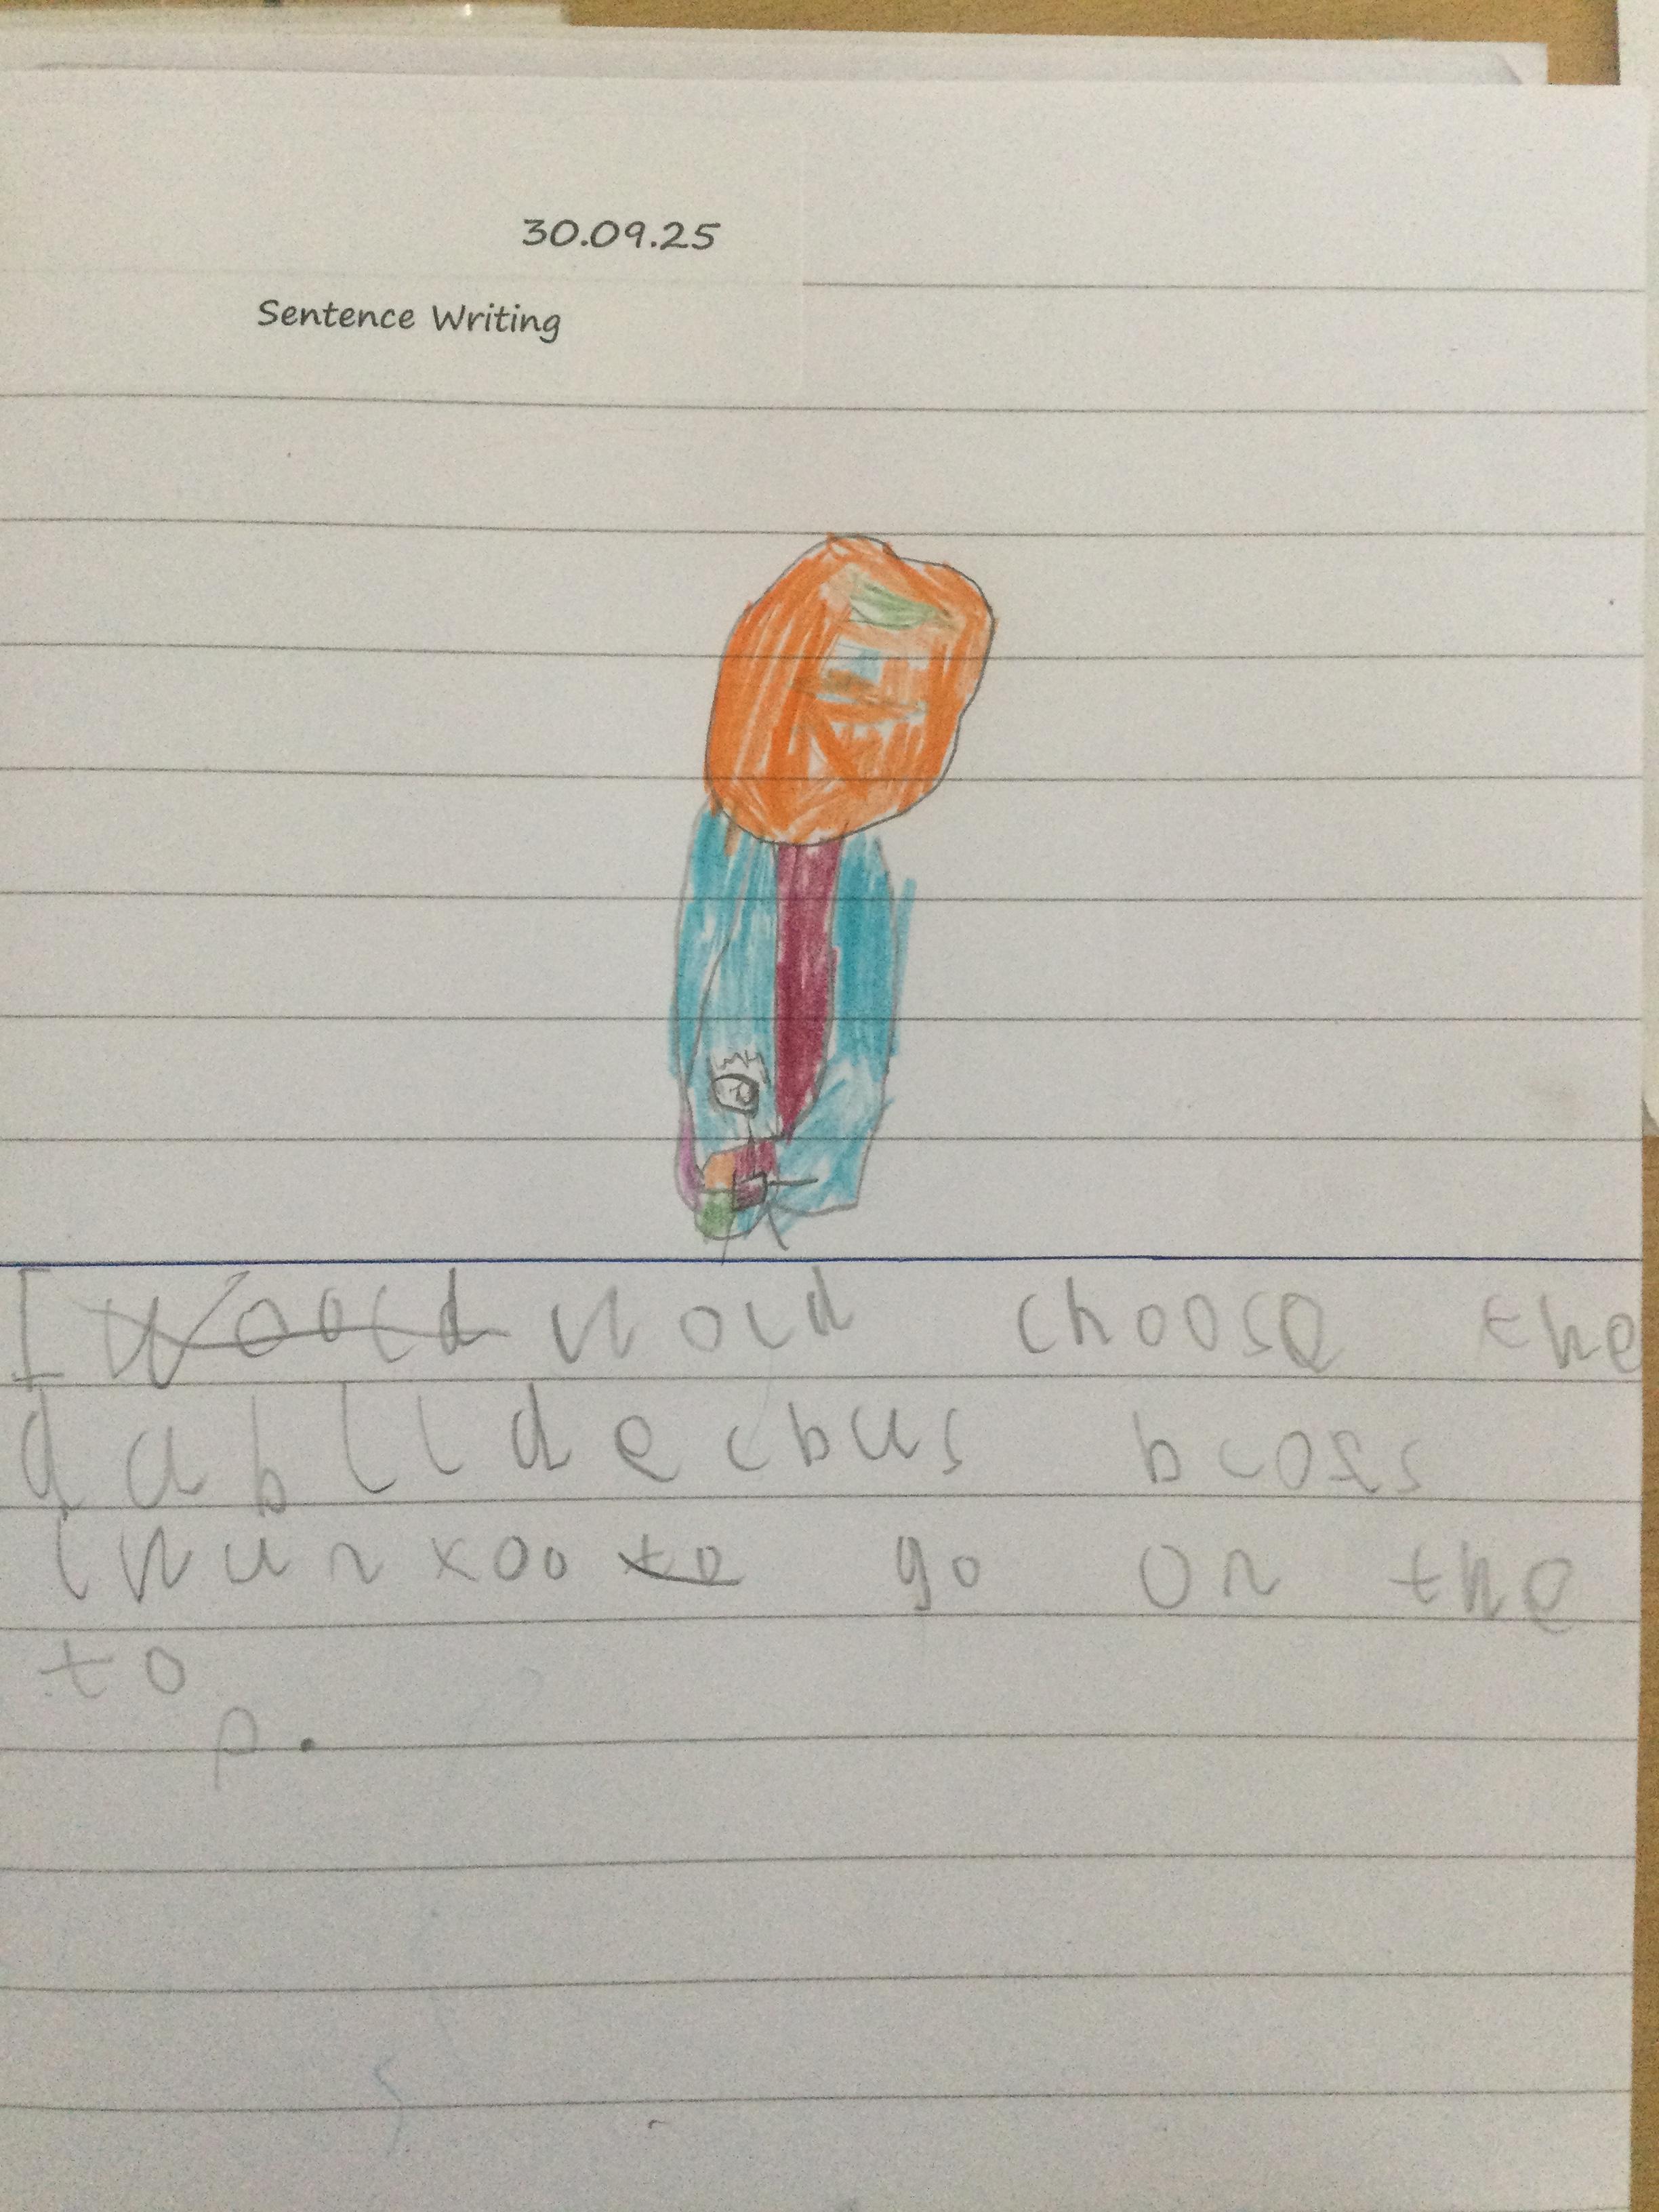 30.09.25
Sentence Writing
I woold wold choose the
dablldecbus bcoss
i wun xoo to go on the
to
p.